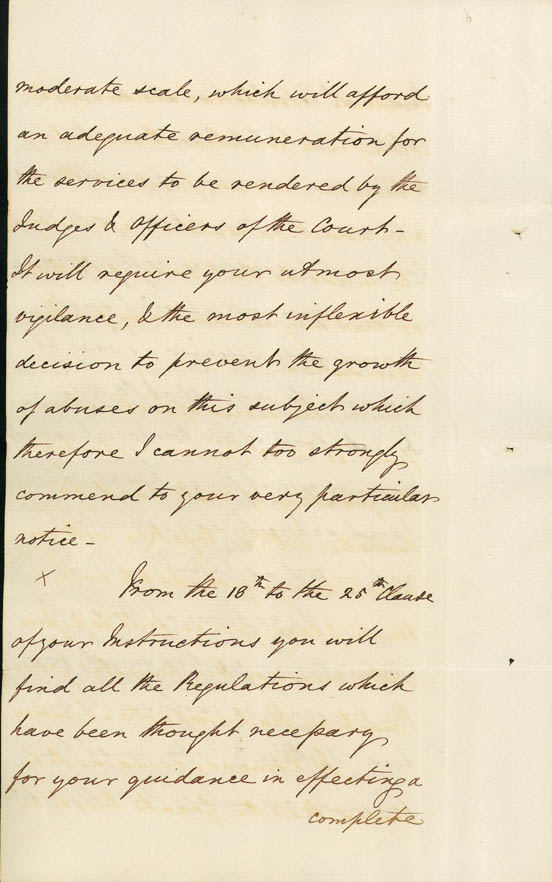 moderate scale, which will afford
an adequate remuneration for
the services to be rendered by the
Judges & Officers of the Court –
It will require your utmost
vigilance, & the most inflexible
decision to prevent the growth
of abuses on this subject which
therefore I cannot too strongly
commend to your very particular
notice –
x From the 18th to the 25th Clause
of your Instructions you will
find all the Regulations which
have been thought necessary
for your guidance in effecting a
complete